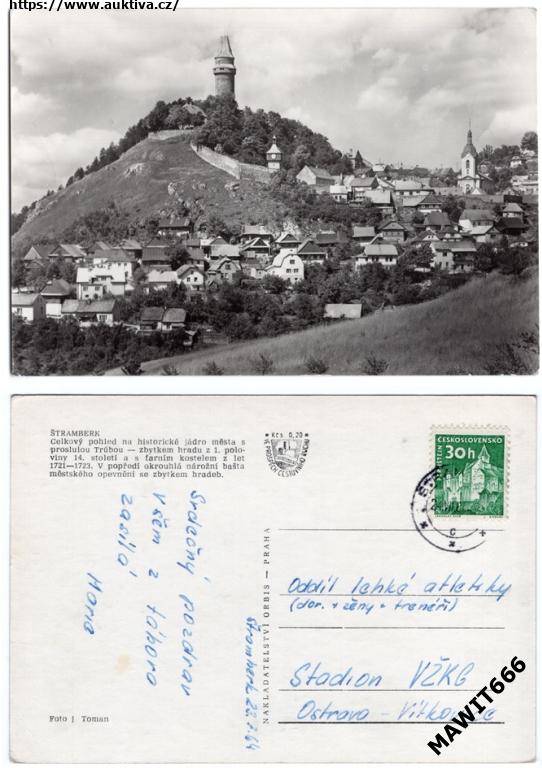 https://www.auktiva.cz/
ŠTRAMBERK
Celkový pohled na historické jádro města s
proslulou Trúbou — zbytkem hradu z 1. polo-
viny 14. století a s farním kostelem z let
1721—1723. V popředí okrouhlá nárožní bašta
městského opevnění se zbytkem hradeb.
Kčs 0,20
VE PROSPĚCH CESTOVNÍHO RUCHU
ČESKOSLOVENSKO
30h
Srdečný pozdrav
všem z tábora
zasílá
Marie
Štramberk 22.7.64
NAKLADATELSTVÍ ORBIS — PRAHA
Oddíl lehké atletiky
(dor. + ženy + trenéři)
Stadion VŽKG
Ostrava - Vítkovice
Foto J Toman
MAWIT666